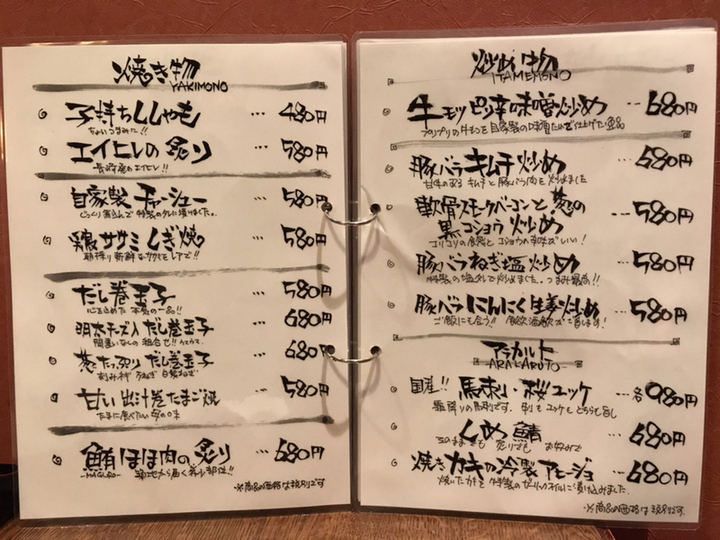 焼き物
YAKIMONO
子持ちししゃも … 480円
ちょいつまみに!!
エイヒレの炙り … 580円
長崎産のエイヒレ!!
自家製チャーシュー … 580円
じっくり煮込んで 特製のタレに漬けました。
鶏ササミしぎ焼 … 580円
朝採り新鮮なササミをレアで!!
だし巻玉子 … 580円
心を込めた 本気の一品!!
明太チーズ入だし巻玉子 … 680円
間違いなしの組合せ!! ウマウマ。
葱たっぷりだし巻玉子 … 680円
甘い出汁巻たまご焼 … 580円
たまに食べたい 母の味
鮪ほほ肉の炙り … 680円
-MAGURO-
※商品の価格は税別です
炒め物
ITAMEMONO
牛モツピリ辛味噌炒め … 680円
豚バラキムチ炒め … 580円
甘辛のある キムチと豚バラ肉を 炒めました
軟骨スモークベーコンと葱の
黒コショウ炒め … 580円
コリコリの食感と コショウの辛味がいい!
豚バラねぎ塩炒め … 580円
特製の塩ダレで炒めました。つまみ最高!!
豚バラにんにく生姜炒め … 580円
アラカルト
ARAKARUTO
国産!! 馬刺し・桜ユッケ … 各980円
霜降りの馬刺です. 刺しも ユッケも どちらも旨し
しめ鯖 … 680円
そのままでも 炙りでも お好みで
焼きカキの冷製アヒージョ … 680円
焼いたカキを 特製のガーリックオイルに漬け込みました
※商品の価格は税別です